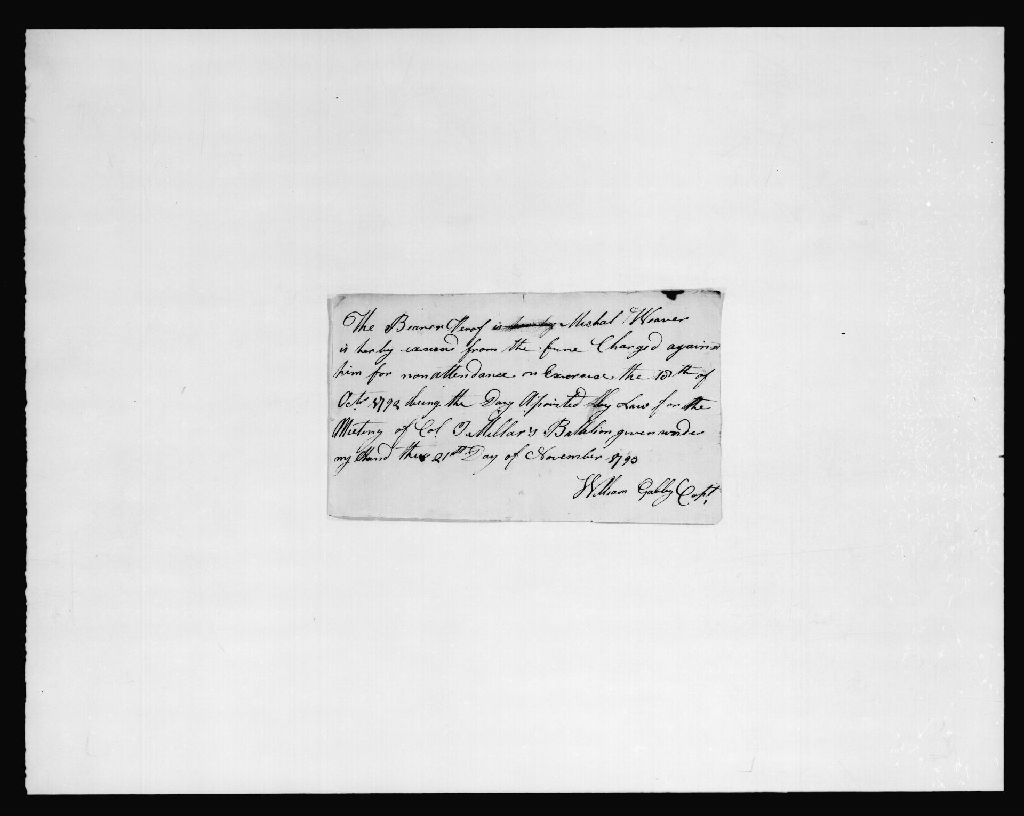 The Bearer Herof is hereby Mishal Weaver
is herby excusd from the fine Charged against
him for nonattendance on Exercise the 18th of
Octr 1792 being the Day Apointed by Law for the
Meeting of Col J Millar's Batalion given under
my Hand this 21st Day of November 1793
William Gabby Capt